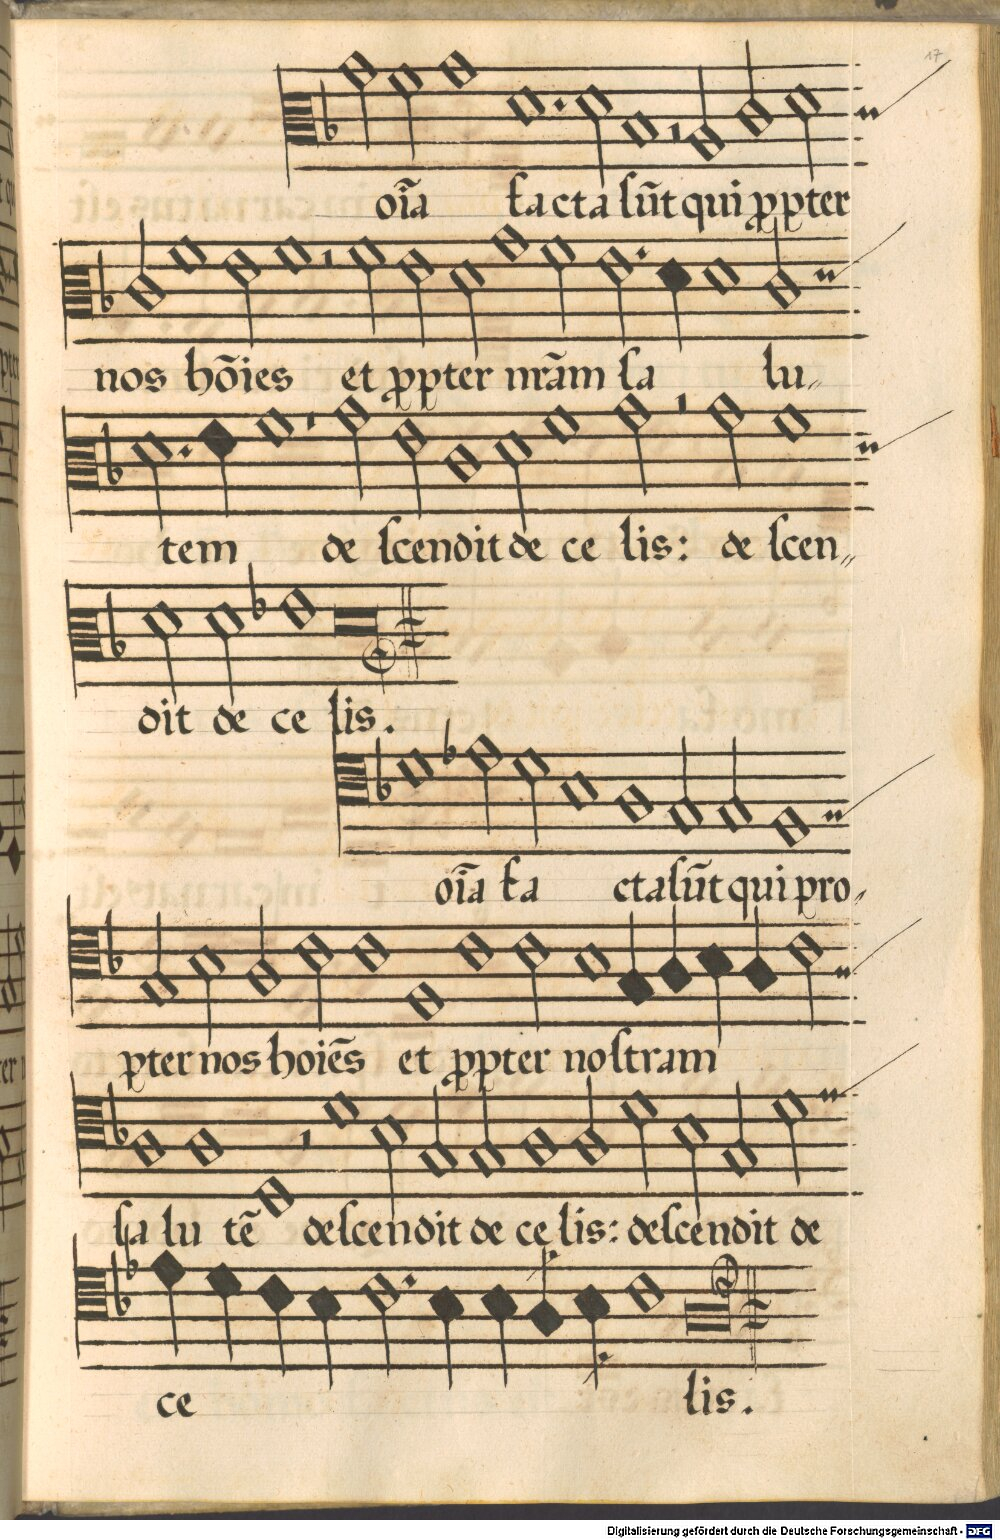 17
oīa facta sūt qui ꝓpter
nos hōies et ꝓpter nrām sa lu〃
tem de scendit de ce lis: de scen〃
dit de ce lis.
oīa fa cta sūt qui pro〃
pter nos hoiēs et ꝓpter nostram
sa lu tē descendit de ce lis: descendit de
ce lis.
Digitalisierung gefördert durch die Deutsche Forschungsgemeinschaft - DFG